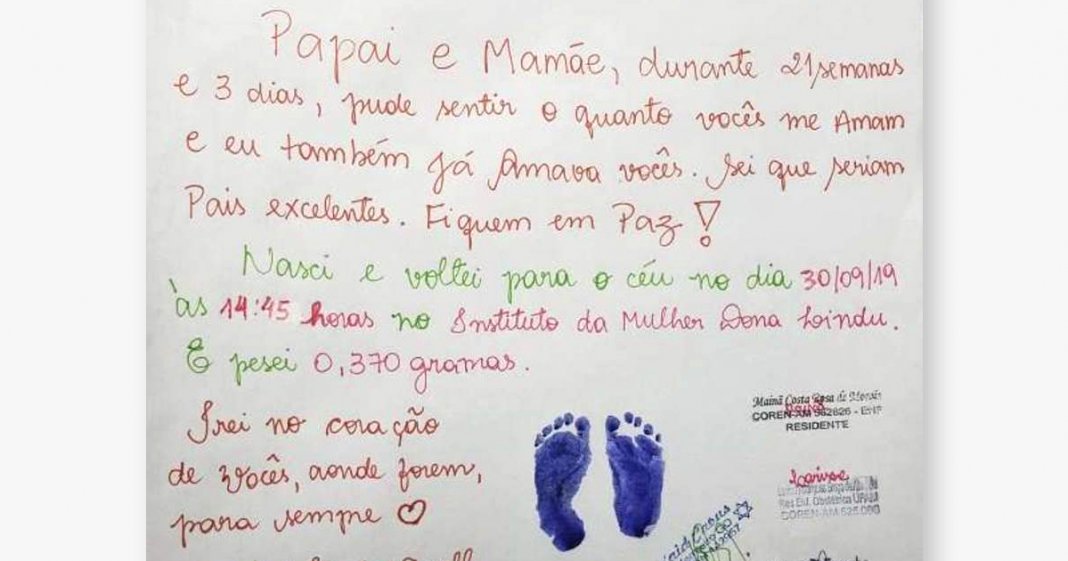 Papai e Mamãe, durante 21 semanas
e 3 dias, pude sentir o quanto vocês me Amam
e eu também já Amava vocês. Sei que seriam
Pais excelentes. Fiquem em Paz!
Nasci e voltei para o céu no dia 30/09/19
às 14:45 horas no Instituto da Mulher Dona Lindu.
E pesei 0,370 gramas.
Irei no coração
de vocês, aonde forem,
para sempre ♡
Mainã Costa Rosa de Morais
COREN-AM 562626 - ENF
RESIDENTE
Larisse
COREN-AM 625.090